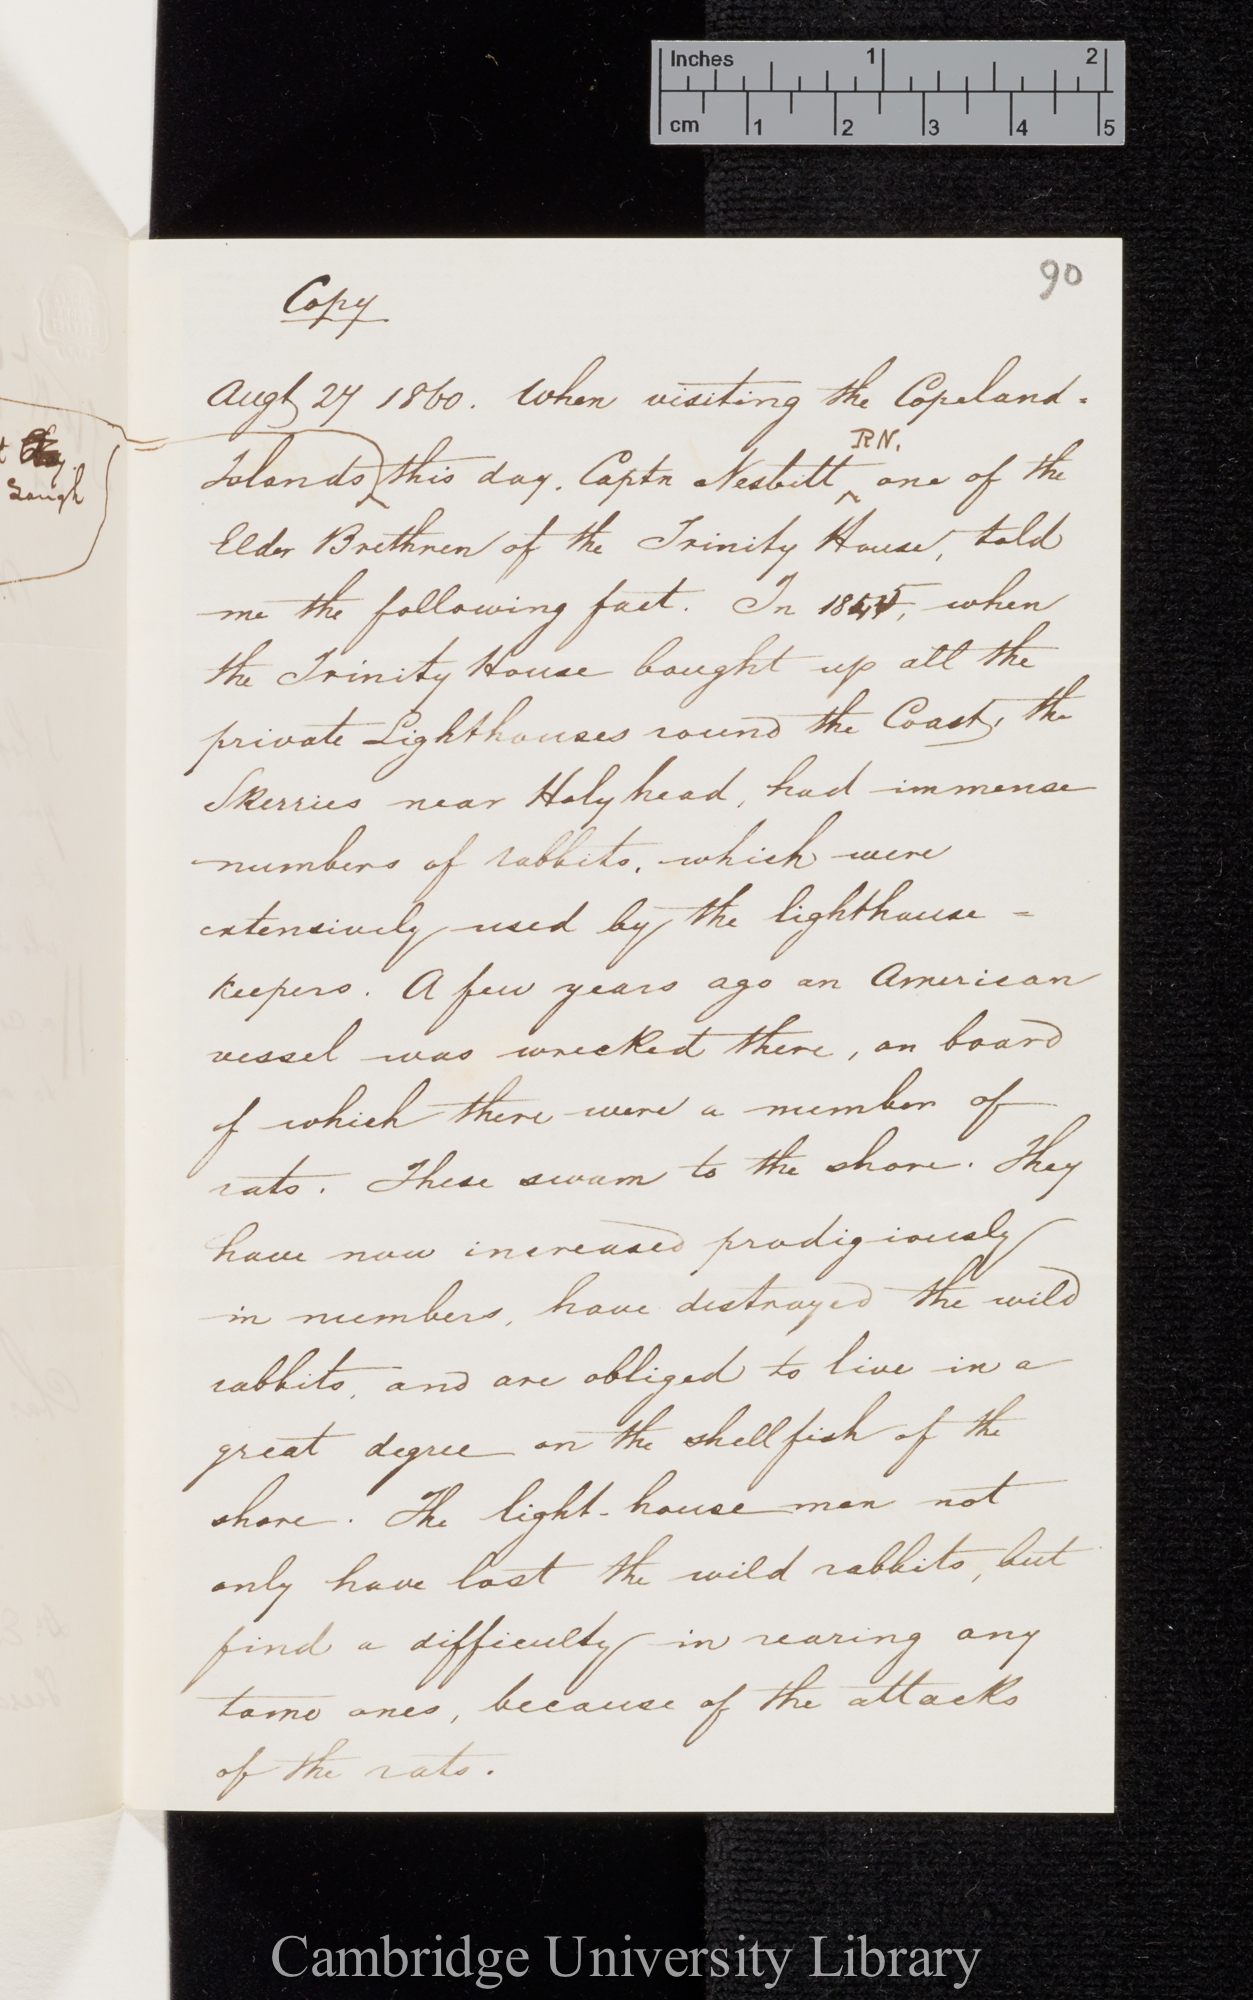 Inches 1 2
cm 1 2 3 4 5
90
Copy
Augt 27 1860. When visiting the Copeland-
R N.
Islands this day. Captn Nesbitt ^ one of the
Elder Brethren of the Trinity House, told
me the following fact. In 1845, when
the Trinity House bought up all the
private Lighthouses round the Coast, the
Skerries near Holyhead, had immense
numbers of rabbits, which were
extensively used by the lighthouse-
keepers. A few years ago an American
vessel was wrecked there, on board
of which there were a number of
rats. These swam to the shore. They
have now increased prodigiously
in numbers, have destroyed the wild
rabbits, and are obliged to live in a
great degree on the shellfish of the
shore. The light-house men not
only have lost the wild rabbits, but
find a difficulty in rearing any
tame ones, because of the attacks
of the rats.
Lough
Cambridge University Library